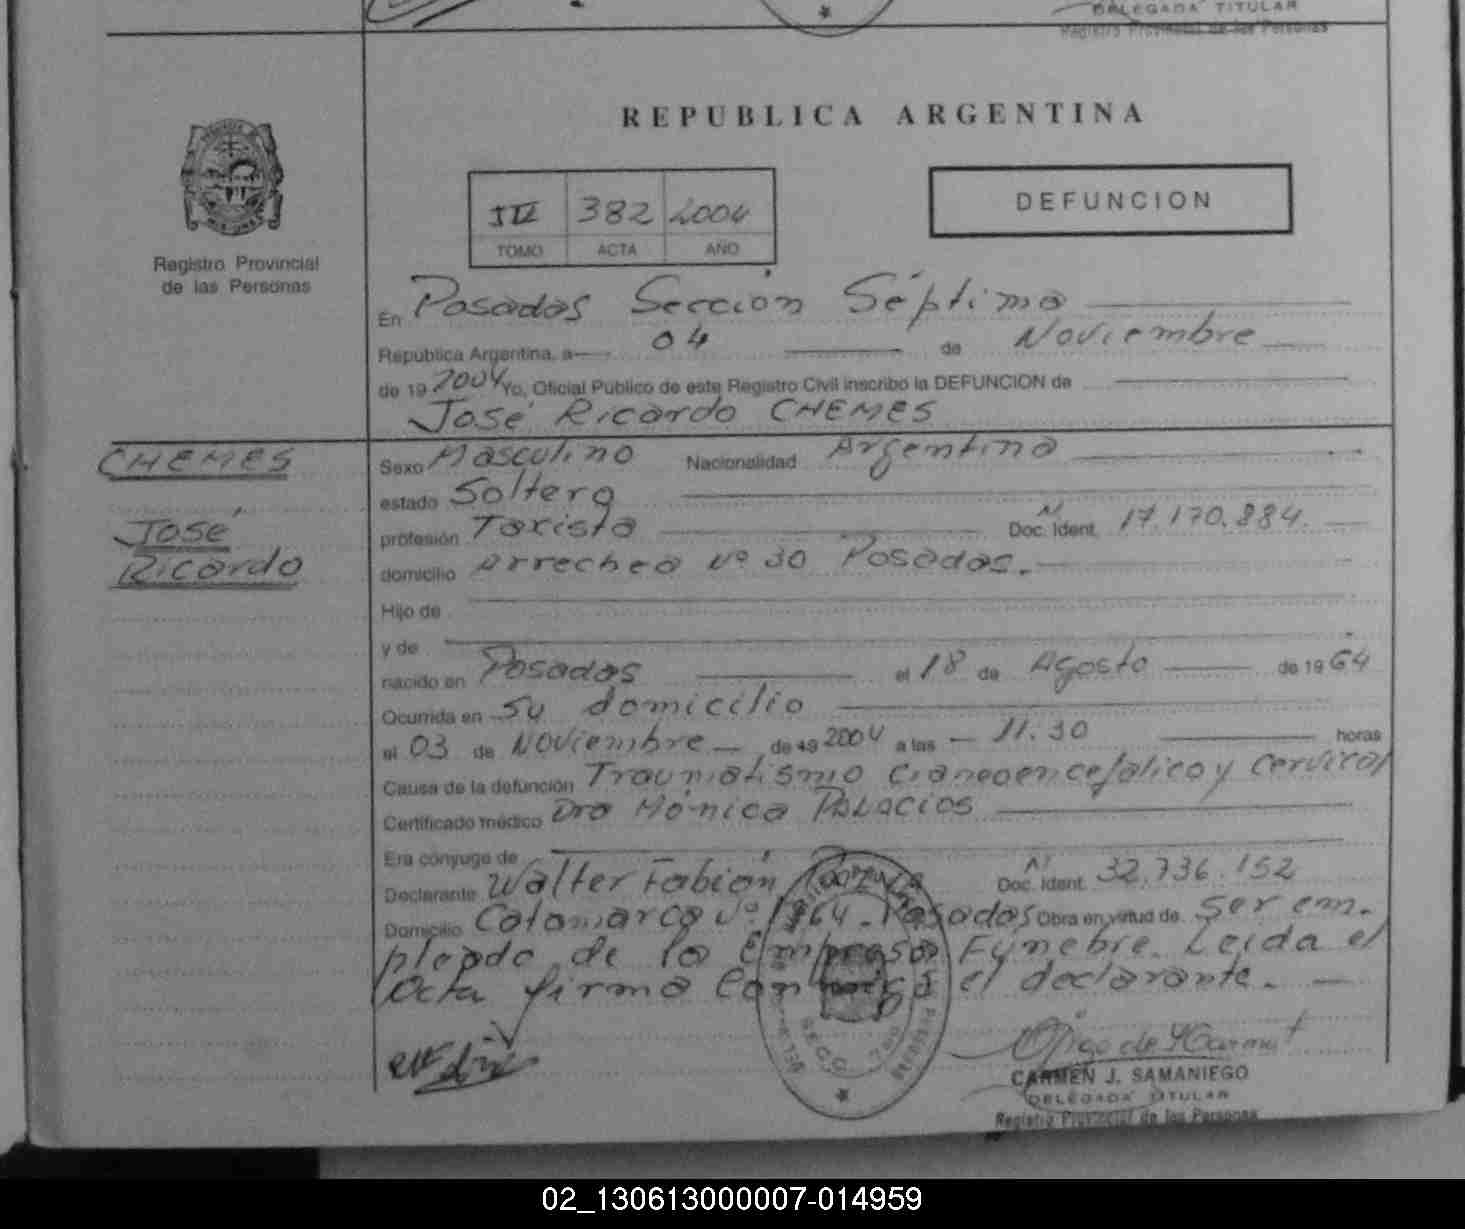 DELEGADA TITULAR
Registro Provincial de las Personas
REPUBLICA ARGENTINA
III 382 2004
TOMO ACTA AÑO
DEFUNCION
Registro Provincial
de las Personas
En Posadas Sección Séptima
República Argentina, a 04 de Noviembre
de 19 2004 Yo, Oficial Público de este Registro Civil inscribo la DEFUNCION de
José Ricardo CHEMES
CHEMES
José
Ricardo
Sexo Masculino Nacionalidad Argentina
estado Soltero
profesión Taxista Doc. Ident. N 17.170.884
domicilio Arrechea Nº 30 Posadas.
Hijo de
y de
nacido en Posadas el 18 de Agosto de 19 64
Ocurrida en su domicilio
el 03 de Noviembre de 19 2004 a las 11.30 horas
Causa de la defunción Traumatismo craneoencefálico y cervical
Certificado médico Dra Mónica PALACIOS
Era cónyuge de
Declarante Walter Fabián Doc. Ident. N 32.736.152
Domicilio Catamarca Nº 1964. Posadas Obra en virtud de ser em-
pleado de la Empresa Fúnebre. Leída el
acta firma conmigo el declarante.
CARMEN J. SAMANIEGO
DELEGADA TITULAR
Registro Provincial de las Personas
02_130613000007-014959